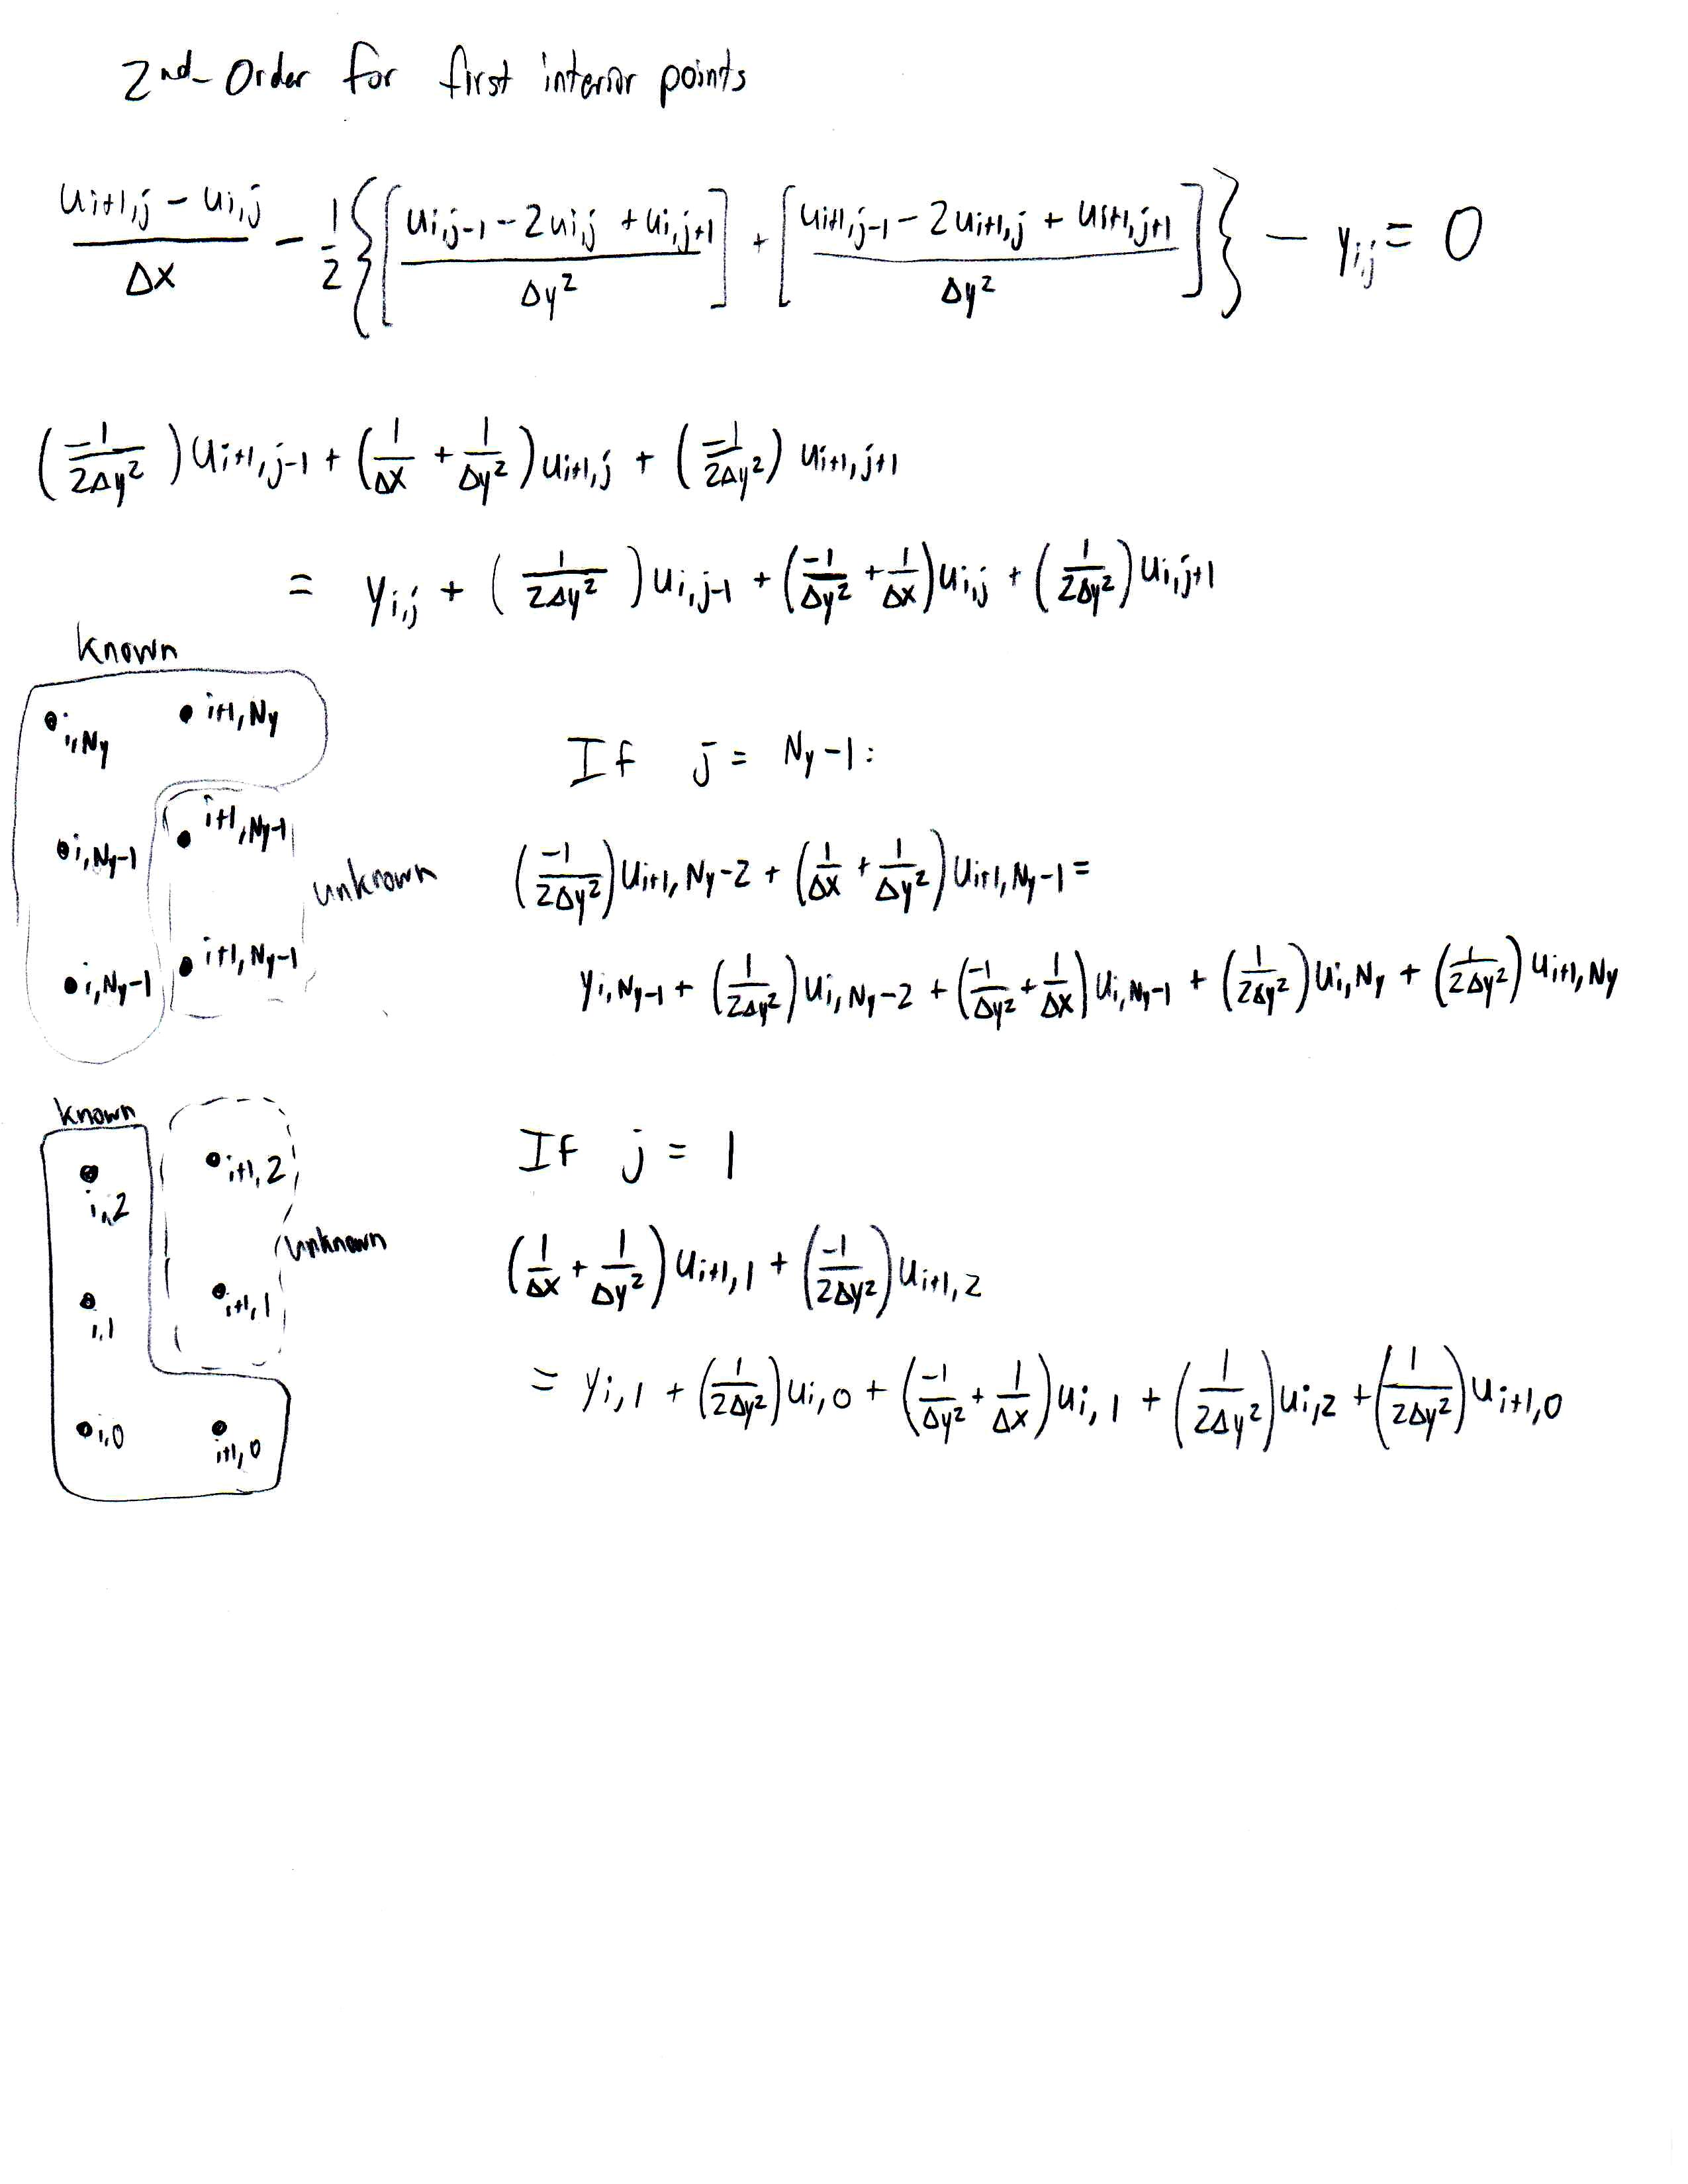 2nd-Order for first interior points
(u_{i+1,j} - u_{i,j})/Δx - 1/2 { [ (u_{i,j-1} - 2u_{i,j} + u_{i,j+1})/Δy² ] + [ (u_{i+1,j-1} - 2u_{i+1,j} + u_{i+1,j+1})/Δy² ] } - y_{i,j} = 0
(-1/(2Δy²)) u_{i+1,j-1} + (1/Δx + 1/Δy²) u_{i+1,j} + (-1/(2Δy²)) u_{i+1,j+1}
= y_{i,j} + (1/(2Δy²)) u_{i,j-1} + (-1/Δy² + 1/Δx) u_{i,j} + (1/(2Δy²)) u_{i,j+1}
known
i,Ny i+1,Ny
i,Ny-1 i+1,Ny-1
unknown
i,Ny-1 i+1,Ny-1
If j = Ny-1:
(-1/(2Δy²)) u_{i+1,Ny-2} + (1/Δx + 1/Δy²) u_{i+1,Ny-1} =
y_{i,Ny-1} + (1/(2Δy²)) u_{i,Ny-2} + (-1/Δy² + 1/Δx) u_{i,Ny-1} + (1/(2Δy²)) u_{i,Ny} + (1/(2Δy²)) u_{i+1,Ny}
known
i,2 i+1,2
unknown
i,1 i+1,1
i,0 i+1,0
If j = 1
(1/Δx + 1/Δy²) u_{i+1,1} + (-1/(2Δy²)) u_{i+1,2}
= y_{i,1} + (1/(2Δy²)) u_{i,0} + (-1/Δy² + 1/Δx) u_{i,1} + (1/(2Δy²)) u_{i,2} + (1/(2Δy²)) u_{i+1,0}